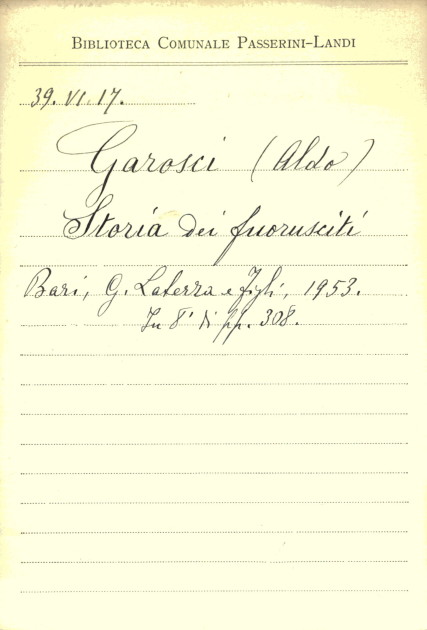 BIBLIOTECA COMUNALE PASSERINI-LANDI
39. VI. 17.
Garosci (Aldo)
Storia dei fuorusciti
Bari, G. Laterza e Figli, 1953.
In 8° di pp. 308.